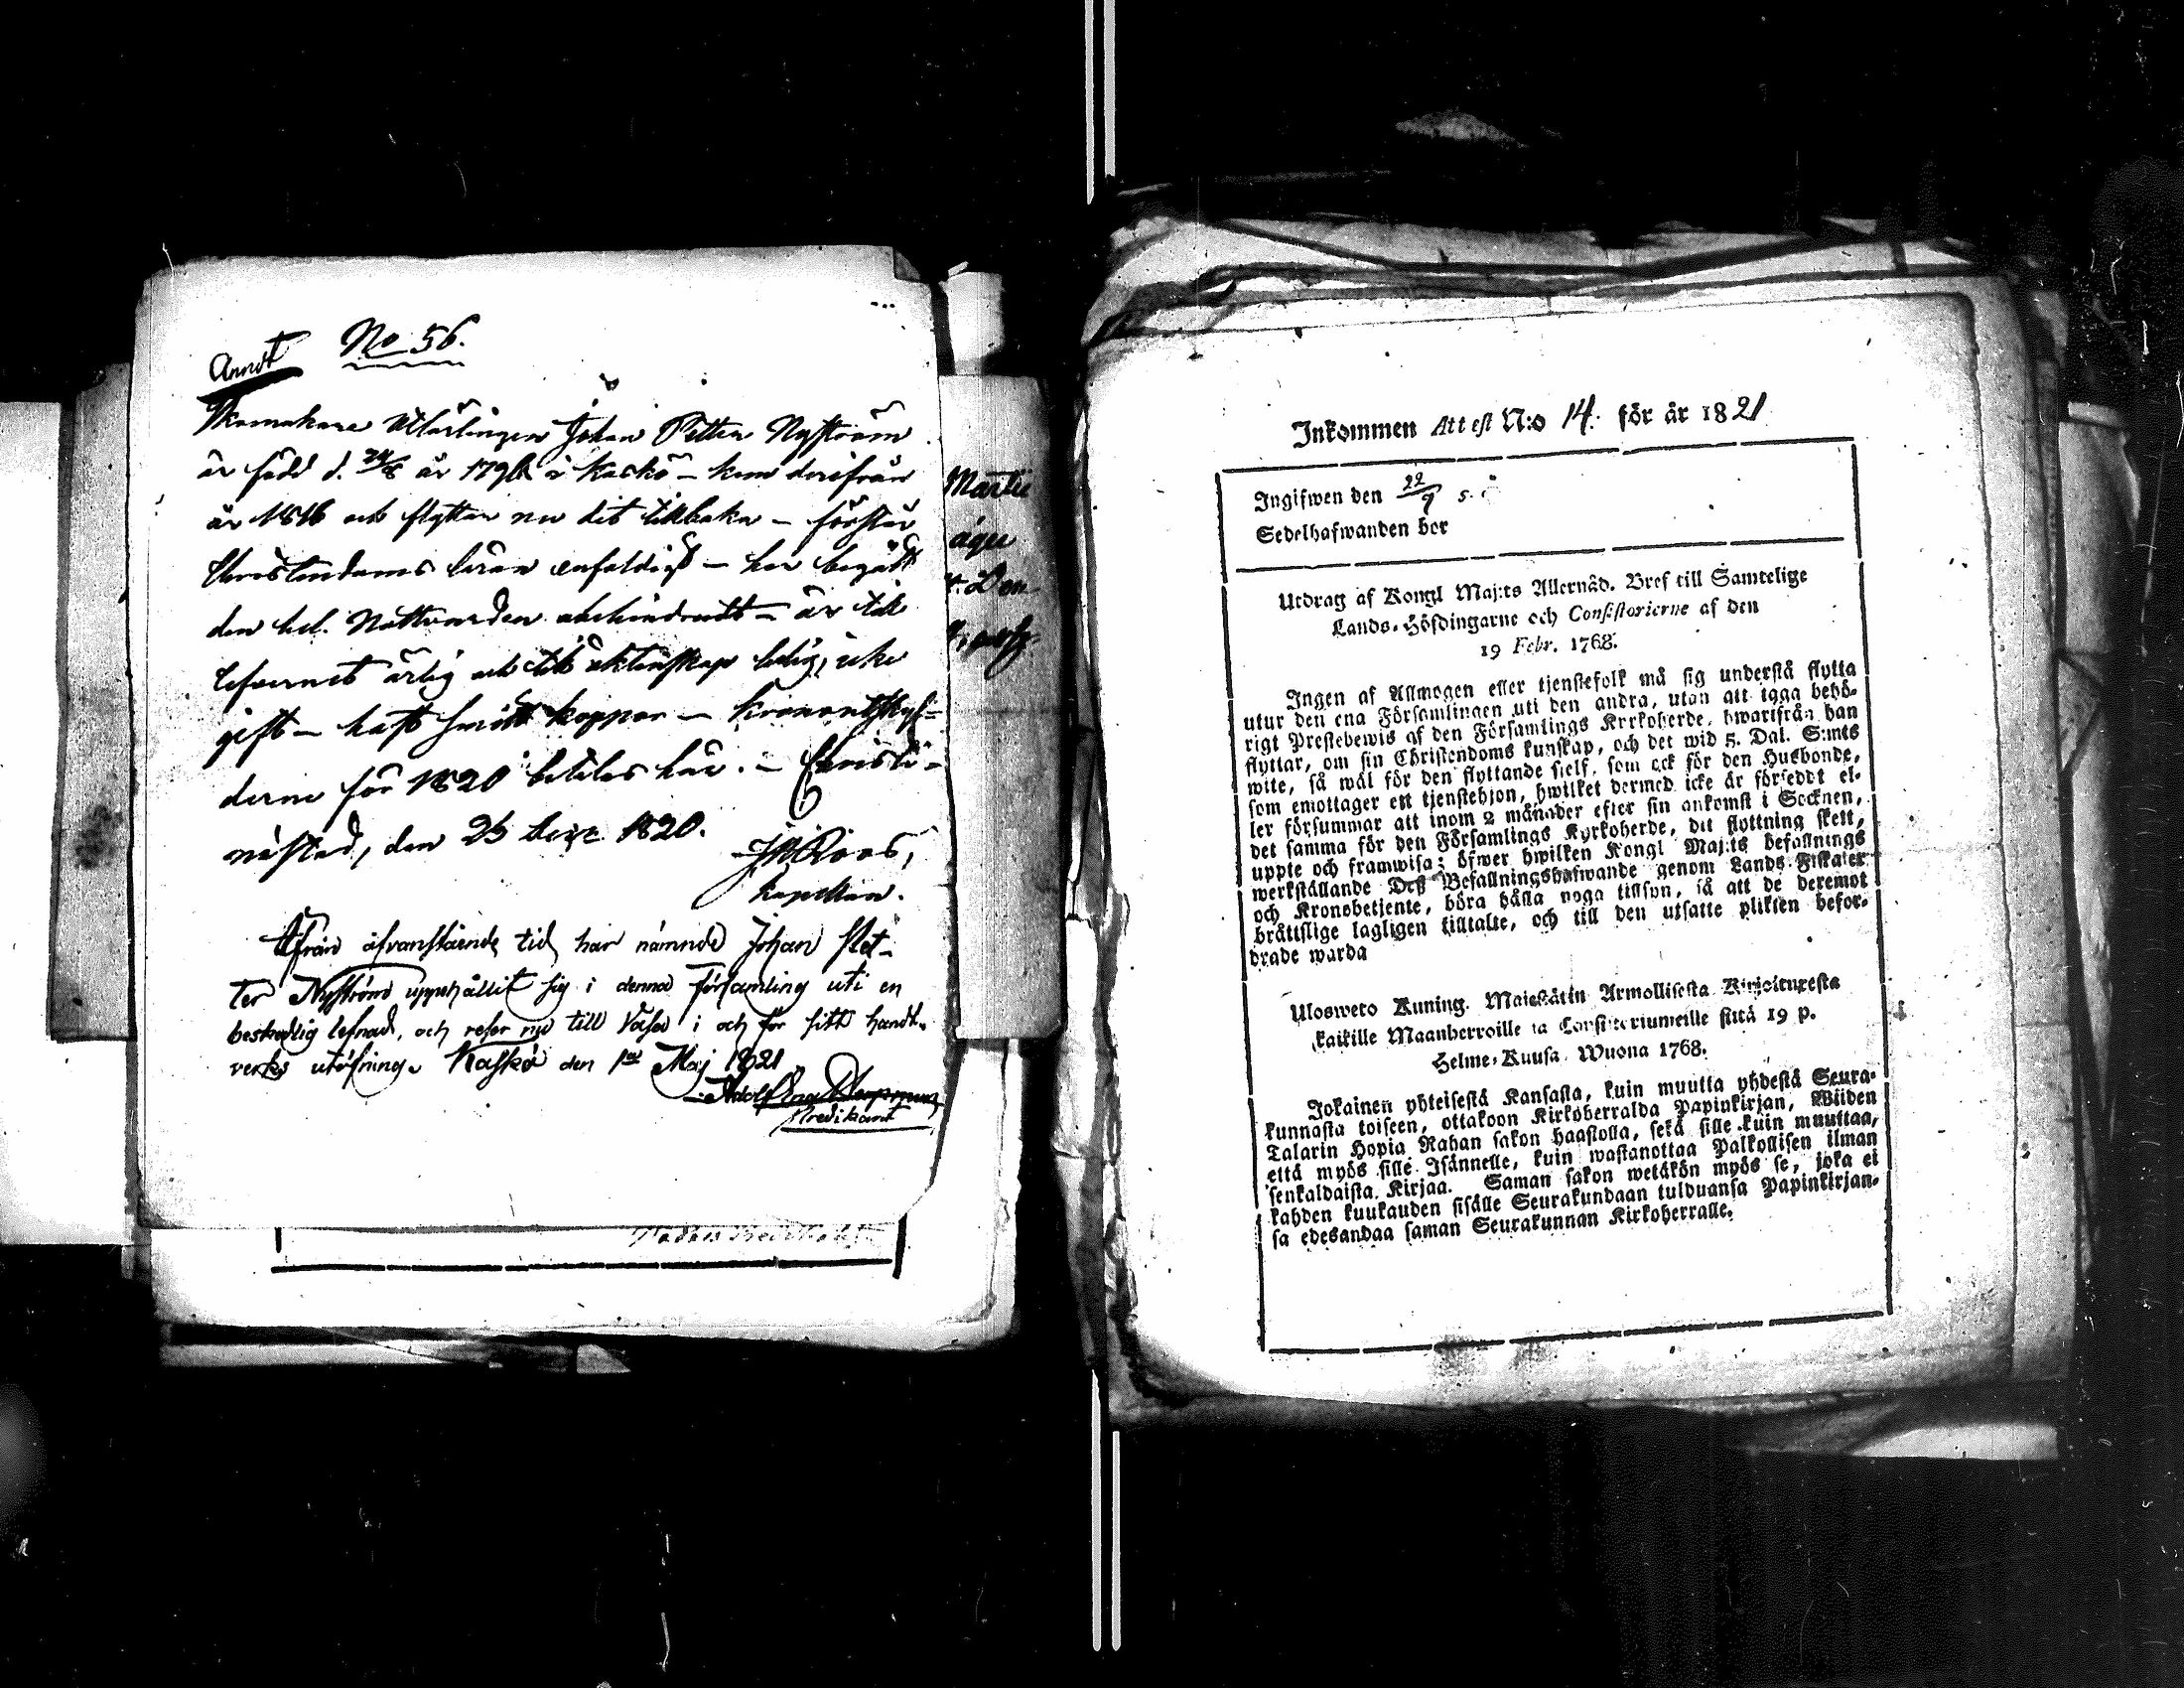 No 56.
Skomakare Utlärlingen Johan Petter Nyström
är född d. 24/8 år 179 i Kaskö – kom derifrån
år 1816 och flyttar nu dit tillbaka – förstår
Christendoms läran enfaldigt – har begått
den hel. Nattvarden obehindradt – är till
lefvernet ärlig och till äktenskap ledig, icke
gift – haft smitt koppor – Kronoutskyl-
derne för 1820 betalas här. – Christi-
nestad, den 23 1820.
Roos,
Kapellan.
Ifrån ofvanstående tid har nämnde Johan Pet-
ter Nyström uppehållit sig i denna Församling uti en
beskedlig lefnad, och reser nu till Vasa i och för sitt handt-
verks utöfning. Kaskö den 1 Maj 1821
Adolf
Predikant
Martii
Inkommen Attest N:o 14. för år 1821
Ingifwen den 22/9 s.
Sedelhafwanden bor
Utdrag af Kongl Maj:ts Allernåd. Bref till Samtelige
Lands-Höfdingarne och Consistorierne af den
19 Febr. 1768.
Ingen af Allmogen eller tjenstefolk må sig understå flytta
utur den ena Församlingen uti den andra, utan att taga behö-
rigt Prestebewis af den Församlings Kyrkoherde, hwarifrån han
flyttar, om sin Christendoms kunskap, och det wid 5. Dal. S:mts
wite, så wäl för den flyttande sielf, som ock för den Husbonde,
som emottager ett tjenstehjon, hwilket dermed icke är försedt el-
ler försummar att inom 2 månader efter sin ankomst i Socknen,
det samma för den Församlings Kyrkoherde, dit flyttning skett,
uppte och framwisa; öfwer hwilken Kongl Maj:ts befallnings
werkställande Deß Befallningshafwande genom Lands-Fiskaler
och Kronobetjente, böra hålla noga tillsyn, så att de deremot
bråttslige lagligen tilltalte, och till den utsatte plikten befor-
drade warda
Ulosweto Kuning. Majestätin Armollisesta Kirjoituxesta
kaikille Maanherroille ja Consistoriumeille siitä 19 p.
Helme-Kuusa Wuona 1768.
Jokainen yhteisestä Kansasta, kuin muutta yhdestä Seura-
kunnasta toiseen, ottakoon Kirkoherralda Papinkirjan, Wiiden
Talarin Hopia Rahan sakon haastolla, sekä sille kuin muuttaa,
että myös sille Isännelle, kuin wastanottaa Palkollisen ilman
senkaldaista Kirjaa. Saman sakon wetäkön myös se, joka ei
kahden kuukauden sisälle Seurakundaan tulduansa Papinkirjan-
sa edesandaa saman Seurakunnan Kirkoherralle.